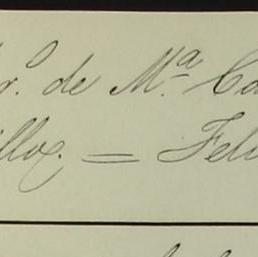 r.º de M.ª Ca
illoz. = Feli